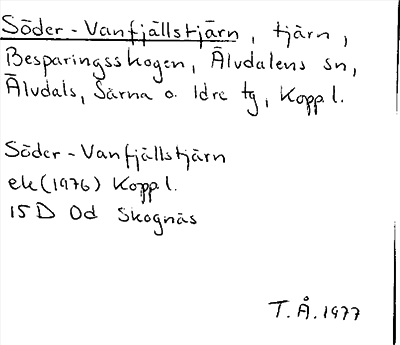 Söder-Vanfjällstjärn, tjärn,
Besparingsskogen, Älvdalens sn,
Älvdals, Särna o. Idre tg, Koppl.
Söder-Vanfjällstjärn
ek(1976) Koppl.
15D 0d Skognäs
T.Å.1977